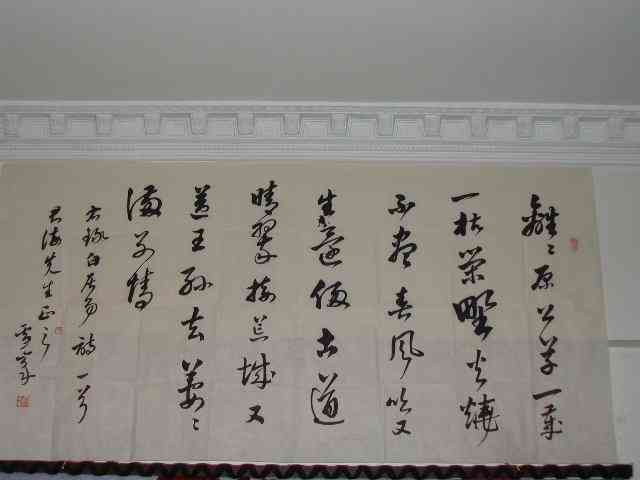 離〻原上草一歲
一枯榮野火燒
不盡春風吹又
生遠侵古道
晴翠接荒城又
送王孫去萋〻
滿別情
右録白居易詩一首
海先生正之